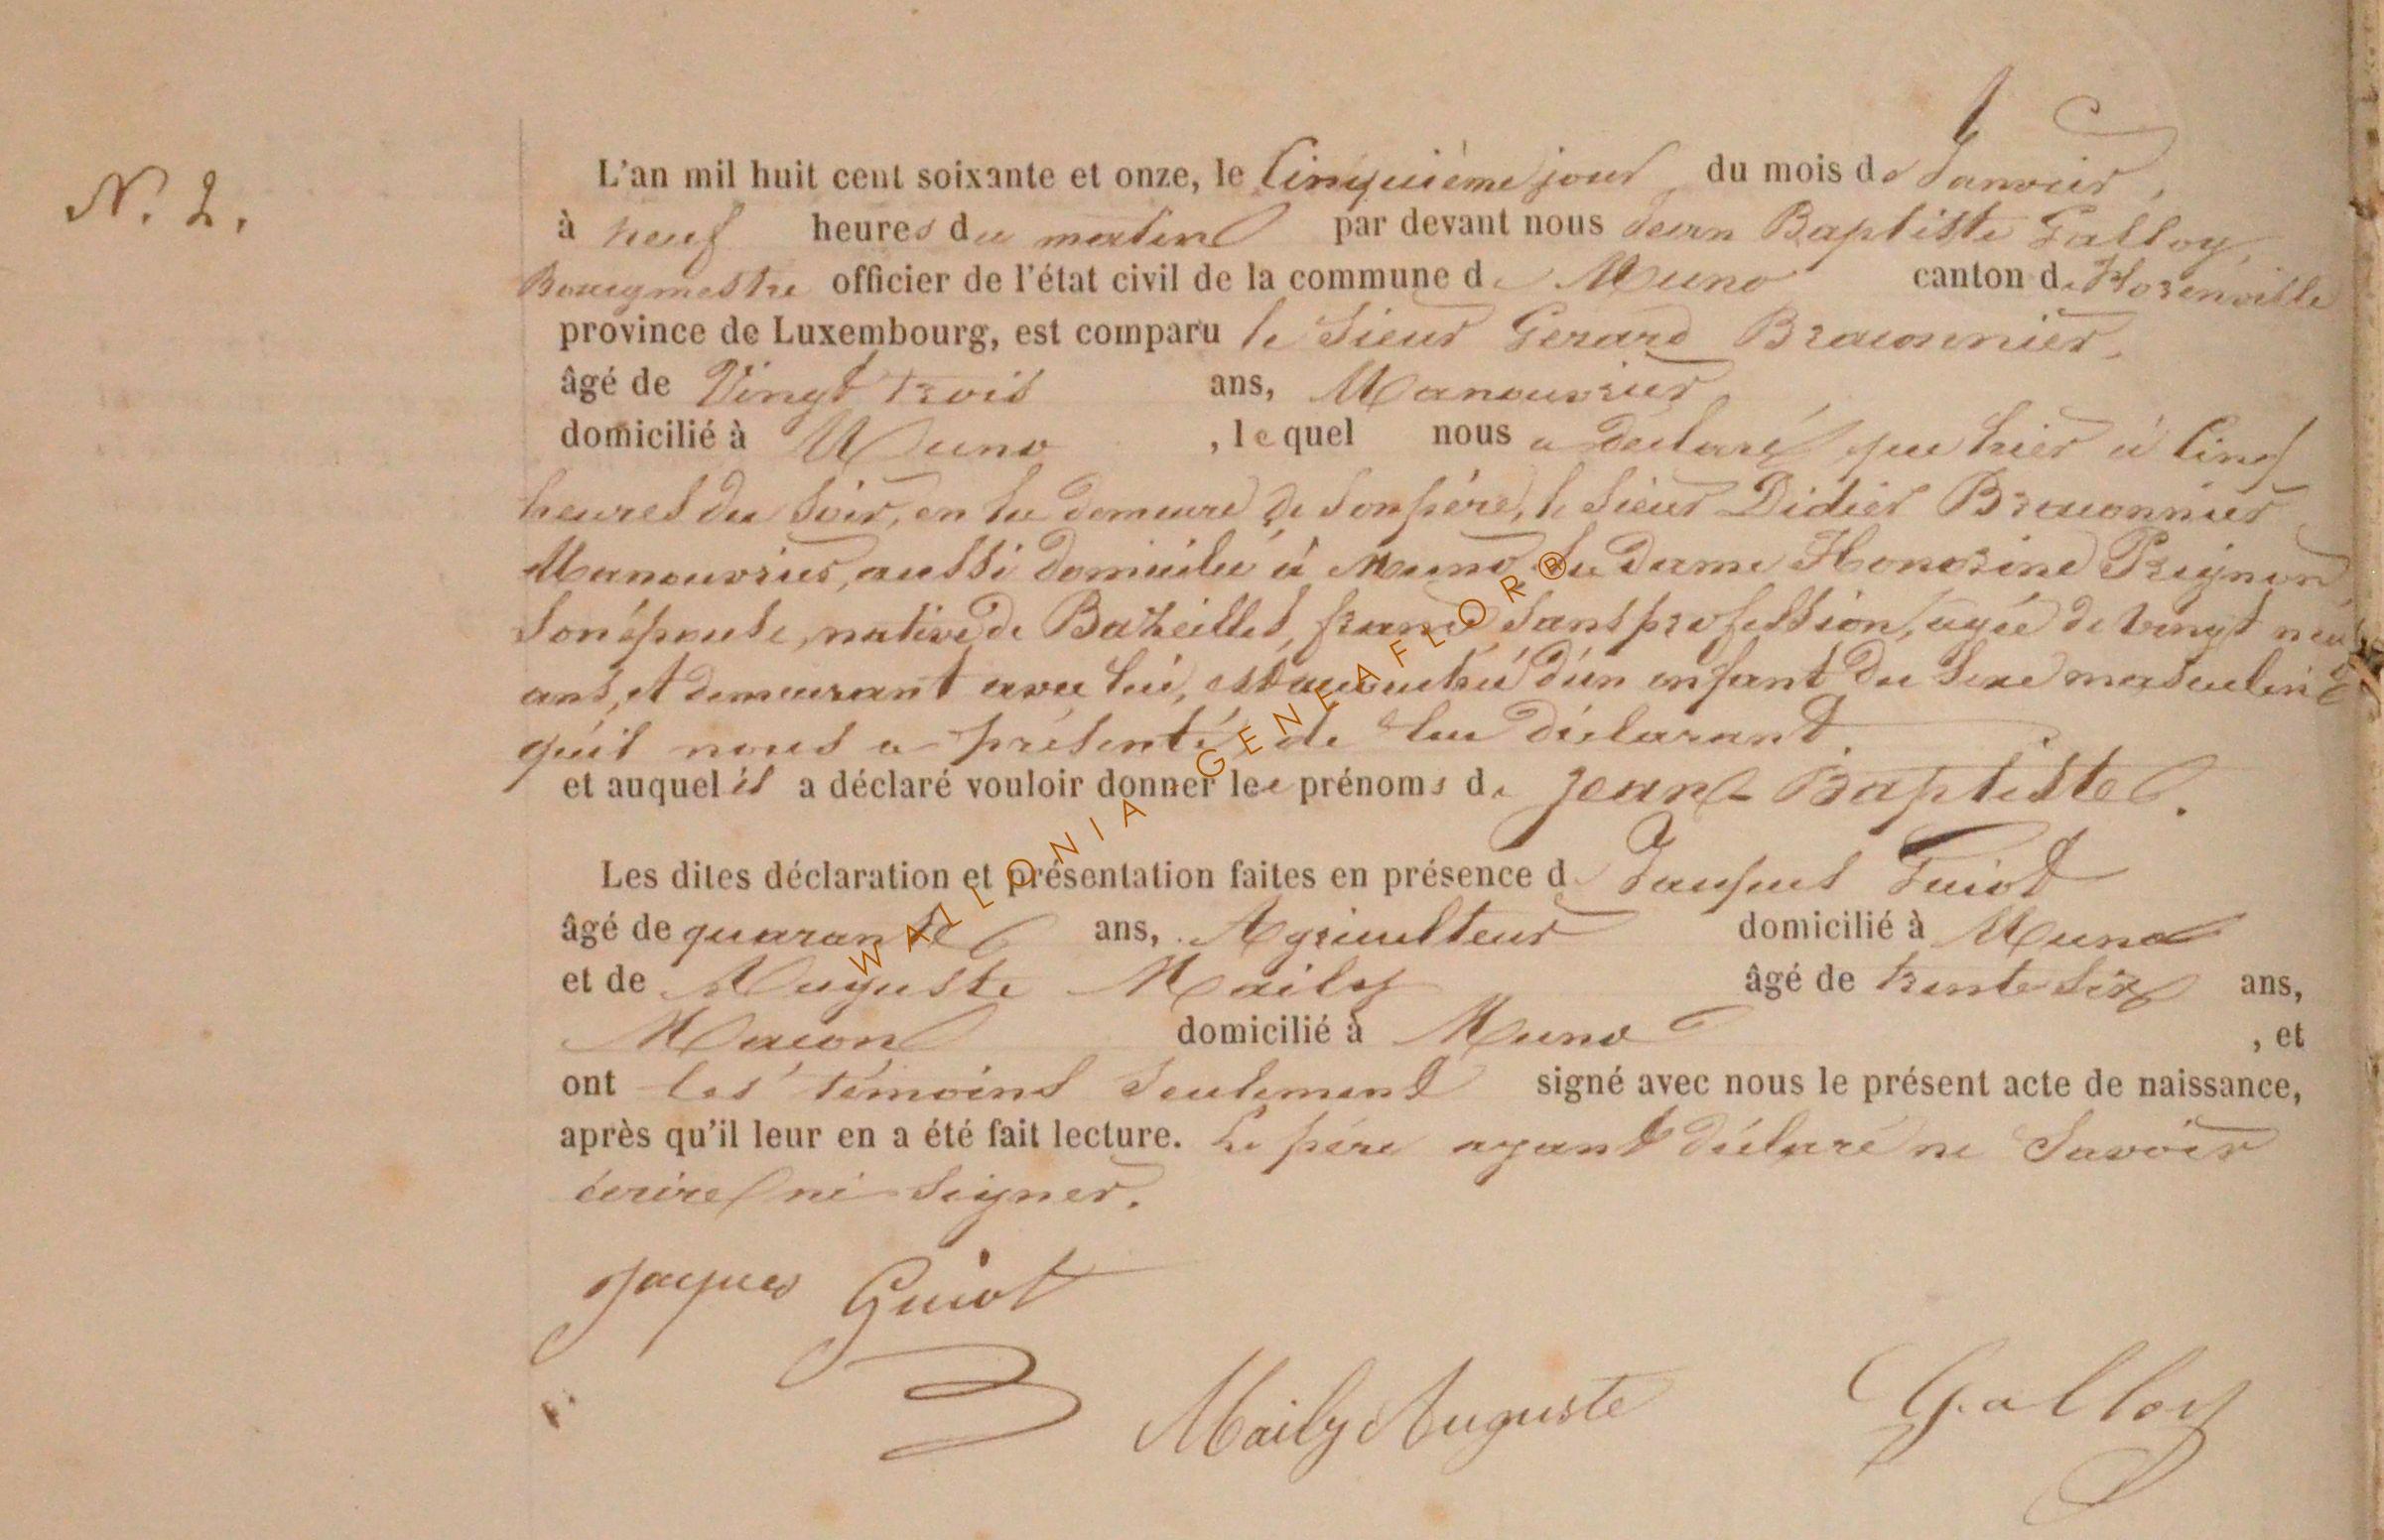 N. 2.
L'an mil huit cent soixante et onze, le Cinquième jour du mois de Janvier,
à neuf heures du matin par devant nous Jean Baptiste Galloy,
Bourgmestre officier de l'état civil de la commune de Muno canton de Florenville
province de Luxembourg, est comparu le Sieur Gerard Braconnier,
âgé de Vingt trois ans, Manouvrier,
domicilié à Muno, lequel nous a declaré que hier à Cinq
heures du Soir, en la demeure de Son père, le Sieur Didier Braconnier
Manouvrier, aussi domicilié à Muno, la Dame Honorine Prignon
Son épouse, native de Bazeilles, france Sans profession, agée de vingt neuf
ans, et demeurant avec lui, est accouchée d'un enfant du Sexe masculin
qu'il nous a présenté, de lui déclarant
et auquel il a déclaré vouloir donner les prénoms de Jean-Baptiste.
Les dites déclaration et présentation faites en présence de Jacques Guiot
âgé de quarante ans, Agriculteur domicilié à Muno
et de Auguste Maily âgé de trente Six ans,
Macon domicilié à Muno, et
ont les témoins Seulement signé avec nous le présent acte de naissance,
après qu'il leur en a été fait lecture. Le père ayant déclaré ne Savoir
écrire ni Signer.
Jacques Guiot
Maily Auguste Galloy
WALLONIA GENEAFLOR®